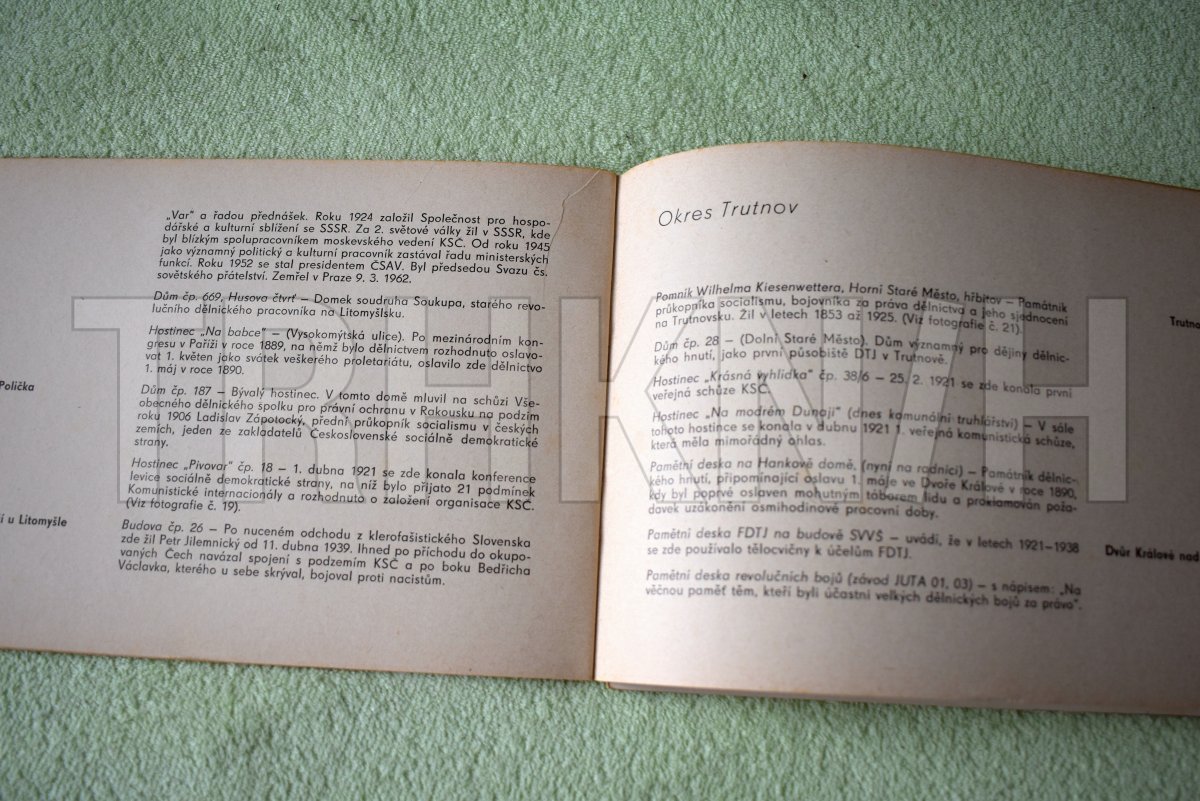 „Var“ a řadou přednášek. Roku 1924 založil Společnost pro hospo-
dářské a kulturní sblížení se SSSR. Za 2. světové války žil v SSSR, kde
byl blízkým spolupracovníkem moskevského vedení KSČ. Od roku 1945
jako významný politický a kulturní pracovník zastával řadu ministerských
funkcí. Roku 1952 se stal presidentem ČSAV. Byl předsedou Svazu čs.
sovětského přátelství. Zemřel v Praze 9. 3. 1962.
Dům čp. 669, Husova čtvrť – Domek soudruha Soukupa, starého revo-
lučního dělnického pracovníka na Litomyšlsku.
Hostinec „Na babce“ – (Vysokomýtská ulice). Po mezinárodním kon-
gresu v Paříži v roce 1889, na němž bylo dělnictvem rozhodnuto oslavo-
vat 1. květen jako svátek veškerého proletariátu, oslavilo zde dělnictvo
1. máj v roce 1890.
Polička
Dům čp. 187 – Bývalý hostinec. V tomto domě mluvil na schůzi Vše-
obecného dělnického spolku pro právní ochranu v Rakousku na podzim
roku 1906 Ladislav Zápotocký, přední průkopník socialismu v českých
zemích, jeden ze zakladatelů Českoslovanské sociálně demokratické
strany.
Hostinec „Pivovar“ čp. 18 – 1. dubna 1921 se zde konala konference
levice sociálně demokratické strany, na níž bylo přijato 21 podmínek
Komunistické internacionály a rozhodnuto o založení organisace KSČ.
(Viz fotografie č. 19).
í u Litomyšle
Budova čp. 26 – Po nuceném odchodu z klerofašistického Slovenska
zde žil Petr Jilemnický od 11. dubna 1939. Ihned po příchodu do okupo-
vaných Čech navázal spojení s podzemím KSČ a po boku Bedřicha
Václavka, kterého u sebe skrýval, bojoval proti nacistům.
Okres Trutnov
Pomník Wilhelma Kiesenwettera, Horní Staré Město, hřbitov – Památník
průkopníka socialismu, bojovníka za práva dělnictva a jeho sjednocení
na Trutnovsku. Žil v letech 1853 až 1925. (Viz fotografie č. 21).
Trutno
Dům čp. 28 – (Dolní Staré Město). Dům významný pro dějiny dělnic-
kého hnutí, jako první působiště DTJ v Trutnově.
Hostinec „Krásná vyhlídka“ čp. 38/6 – 25. 2. 1921 se zde konala první
veřejná schůze KSČ.
Hostinec „Na modrém Dunaji“ (dnes komunální truhlářství) – V sále
tohoto hostince se konala v dubnu 1921 1. veřejná komunistická schůze,
která měla mimořádný ohlas.
Pamětní deska na Hankově domě, (nyní na radnici) – Památník dělnic-
kého hnutí, připomínající oslavu 1. máje ve Dvoře Králové v roce 1890,
kdy byl poprvé oslaven mohutným táborem lidu a proklamován poža-
davek uzákonění osmihodinové pracovní doby.
Pamětní deska FDTJ na budově SVVŠ – uvádí, že v letech 1921–1938
se zde používalo tělocvičny k účelům FDTJ.
Dvůr Králové nad
Pamětní deska revolučních bojů (závod JUTA 01, 03) – s nápisem: „Na
věčnou paměť těm, kteří byli účastni velkých dělnických bojů za práva“.
TRHKNIH